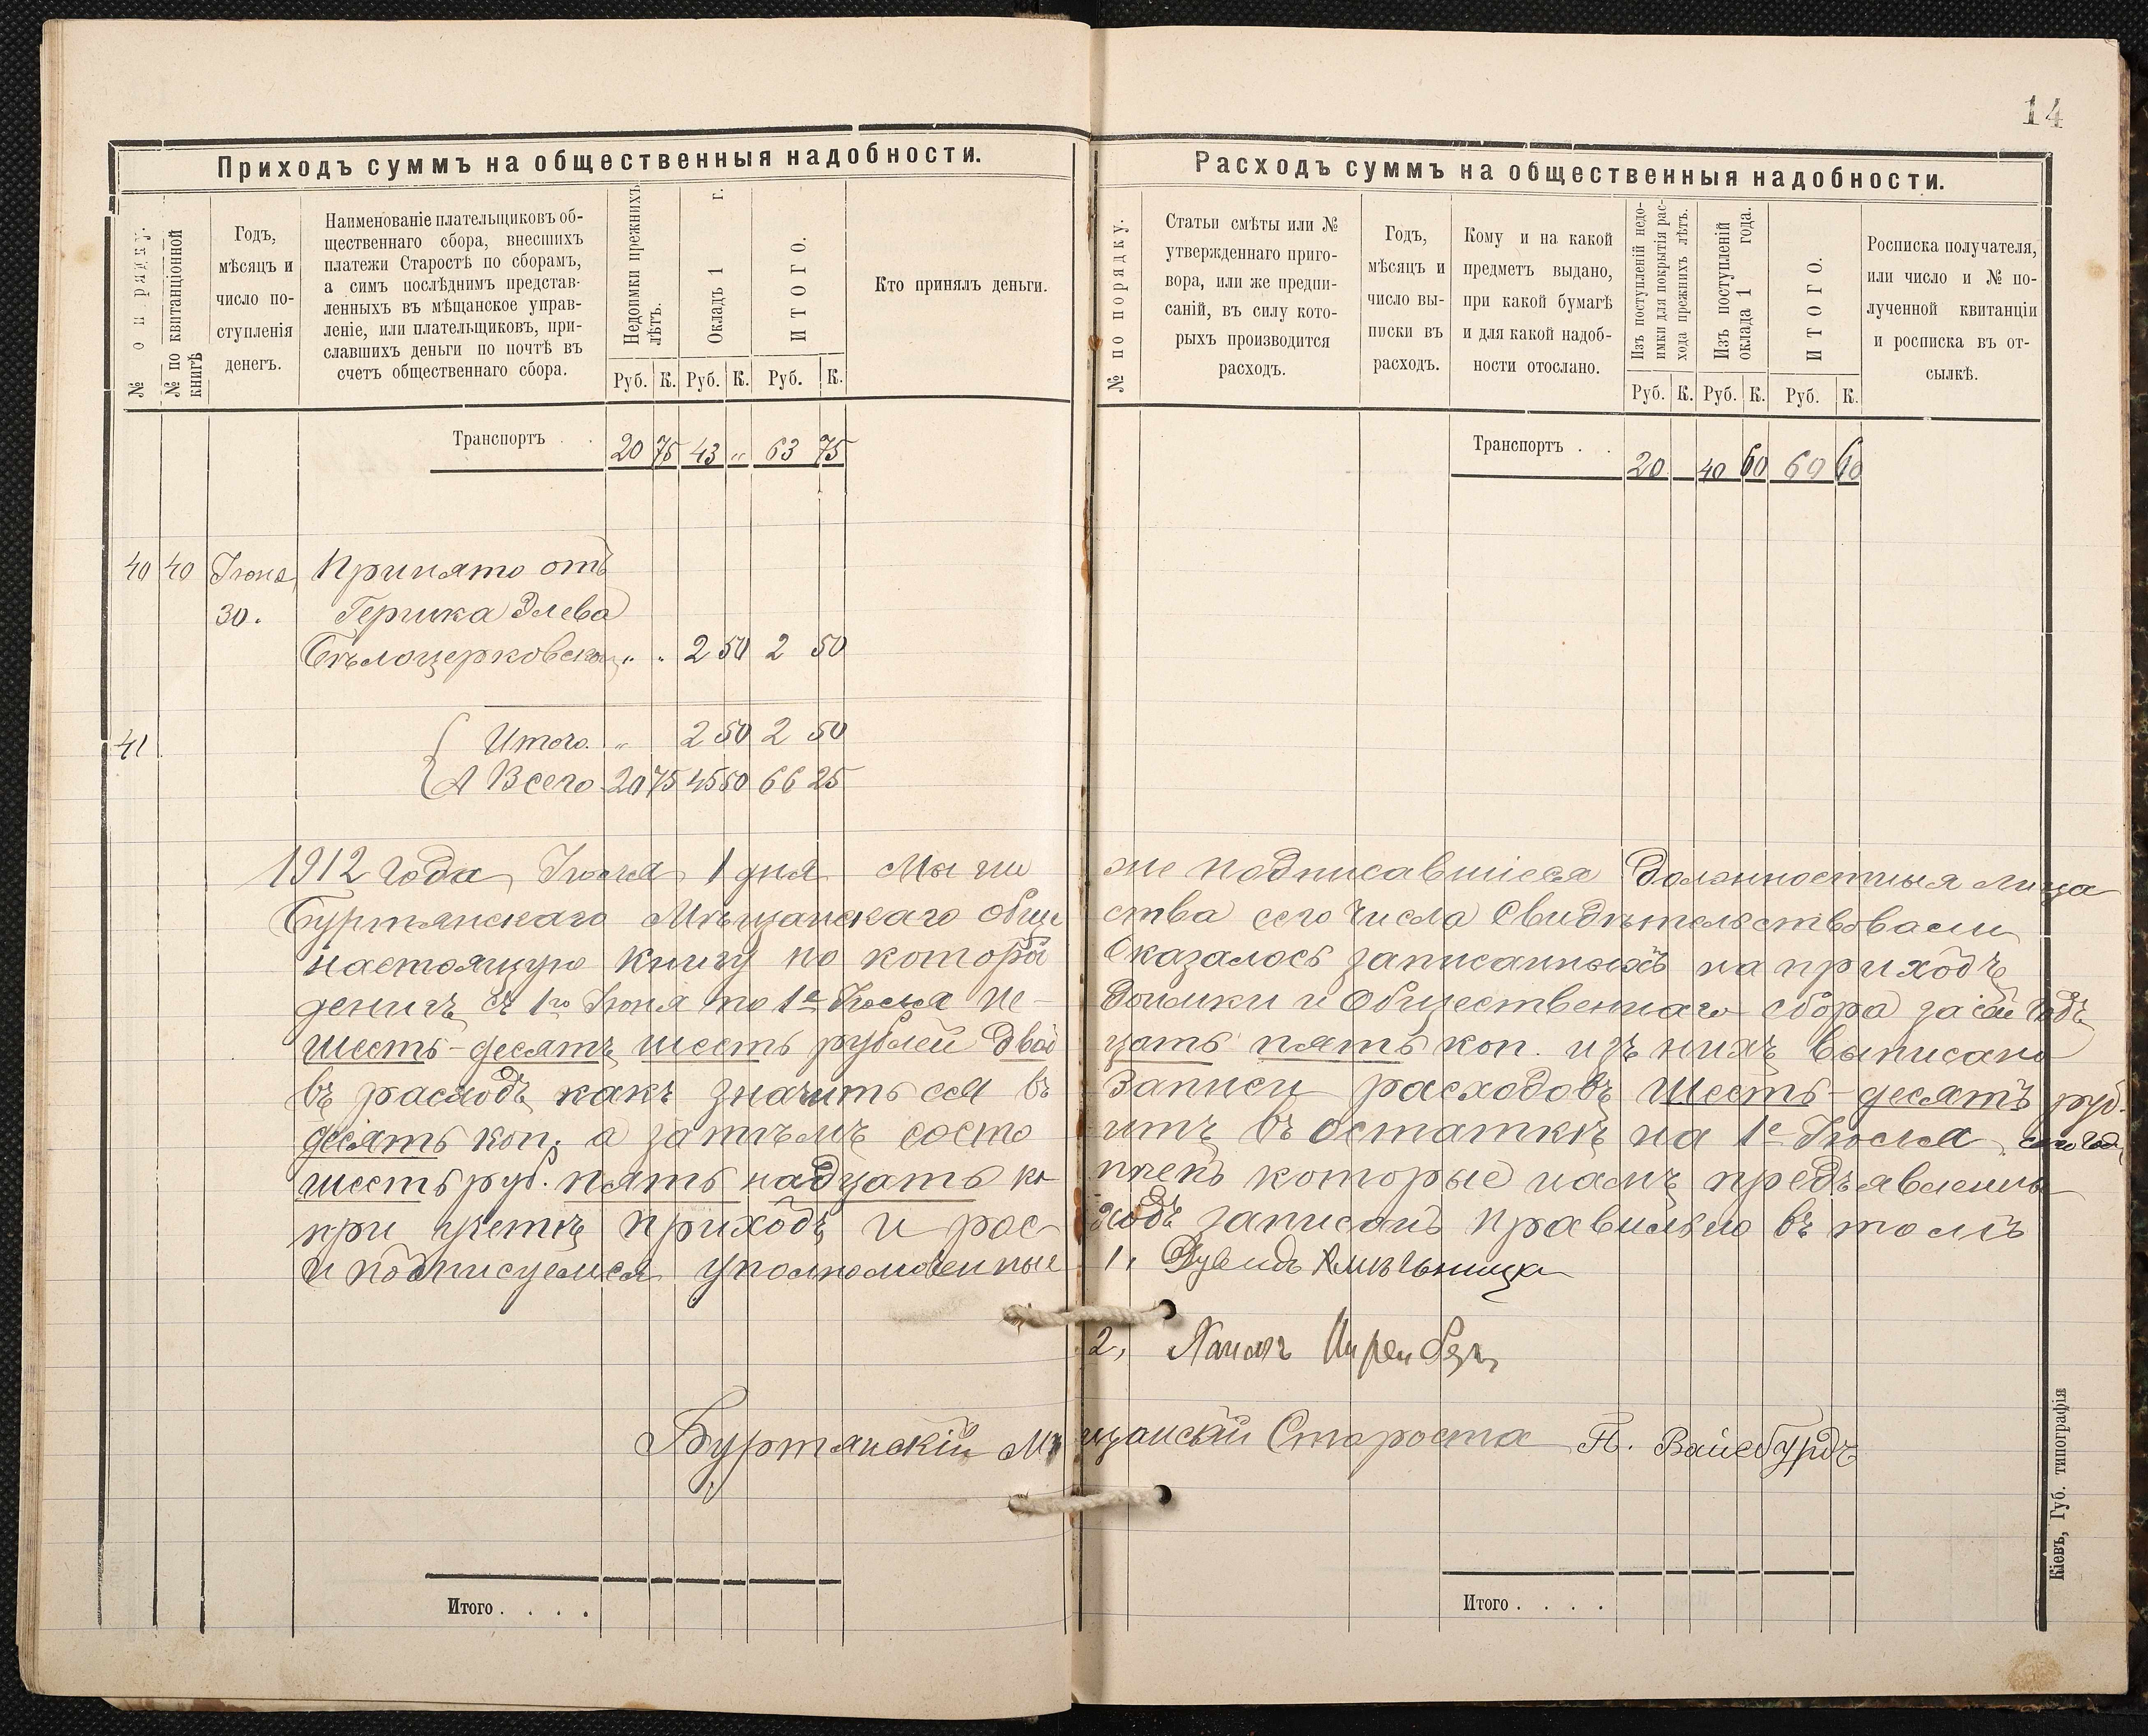 14
Приходъ суммъ на общественныя надобности.
№ по рядку.
№ по квитанціонной книгѣ
Годъ,
мѣсяцъ и
число по-
ступленія
денегъ.
Наименованіе плательщиковъ об-
щественнаго сбора, внесшихъ
платежи Старостѣ по сборамъ,
а симъ послѣднимъ представ-
ленныхъ въ мѣщанское управ-
леніе, или плательщиковъ, при-
славшихъ деньги по почтѣ въ
счетъ общественнаго сбора.
Недоимки прежнихъ
лѣтъ.
Окладъ 1 г.
ИТОГО.
Руб. К. Руб. К. Руб. К.
Кто принялъ деньги.
Транспортъ . . 20 75 43 „ 63 75
40 40 Іюня Принято отъ
30. Гершка Элева
Бѣлоцерковской „ „ 2 50 2 50
41 Итого „ 2 50 2 50
А Всего 20 75 45 50 66 25
Расходъ суммъ на общественныя надобности.
№ по порядку.
Статьи смѣты или №
утвержденнаго приго-
вора, или же предпи-
саній, въ силу кото-
рыхъ производится
расходъ.
Годъ,
мѣсяцъ и
число вы-
писки въ
расходъ.
Кому и на какой
предметъ выдано,
при какой бумагѣ
и для какой надоб-
ности отослано.
Изъ поступленій недо-
имки для покрытія рас-
хода прежнихъ лѣтъ.
Изъ поступленій
оклада 1 года.
ИТОГО.
Руб. К. Руб. К. Руб. К.
Росписка получателя,
или число и № по-
лученной квитанціи
и росписка въ от-
сылкѣ.
Транспортъ . . 20 40 60 60
1912 года Іюля 1 дня Мы ни же подписавшіеся должностныя лица
Буртянскаго Мѣщанскаго обще ства сего числа Свидѣтельствовали
настоящую книгу по которой Оказалось записанныхъ на приходъ
денигъ съ 1го Іюня по 1е Іюля Не- доимки и Общественнаго сбора за сей годъ
шесть-десятъ шесть рублей двад цать пять коп. изъ нихъ выписано
въ расходъ какъ значиться въ Записи расходовъ шесть-десятъ руб.
десять коп. а затѣмъ состо итъ въ остаткѣ на 1е Іюля сего года
шесть руб. пять надцать ко пѣекъ которые намъ предъявлены
при учетѣ приходъ и рас ходъ записанъ правильно въ томъ
и подписуемся уполномоченные 1. Дувидъ Хмѣльницка
2,
Буртянскій Мѣ щанскій Староста П. Вайсбурдъ
Итого . . . .
Итого . . . .
Кіевъ, Губ. типографія